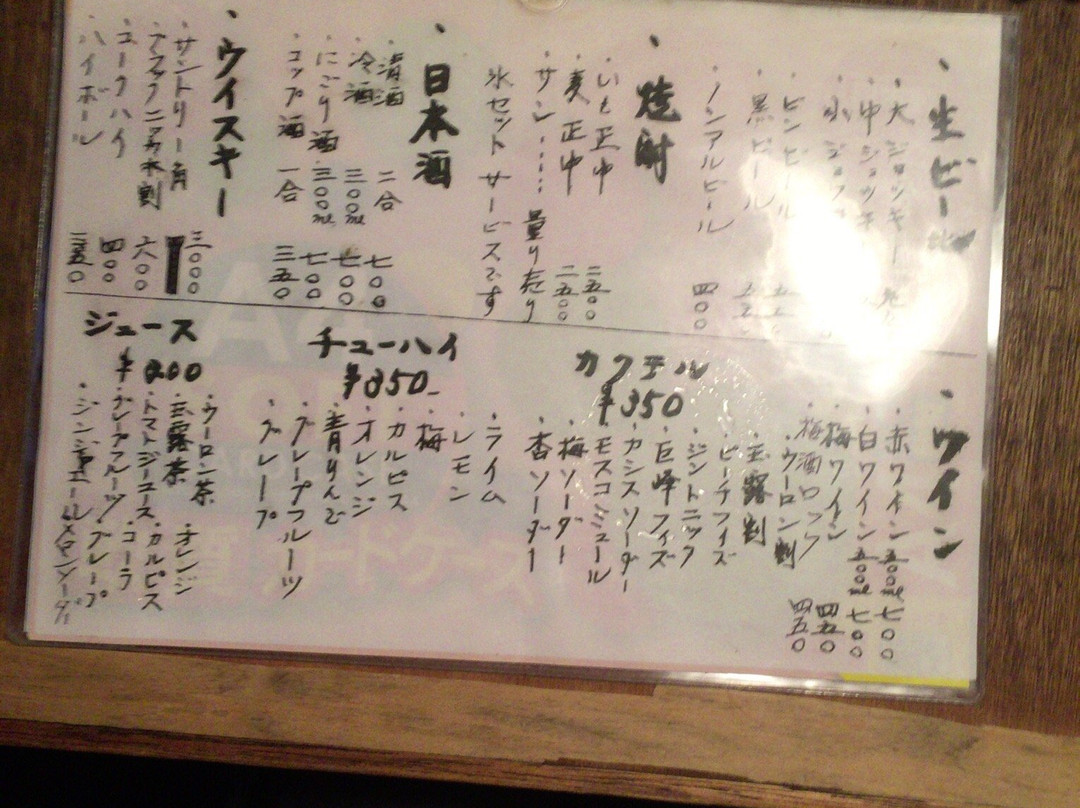 ・生ビール
・大ジョッキー
・中ジョッキー
・小ジョッキ
・ビンビール
・黒ビール
・ノンアルビール 四〇〇
・焼酎
・いも 正中 二五〇
・麦 正中 二五〇
・サン…… 量りたり
氷セット サービスです
・日本酒
・清酒 二合 七〇〇
・冷酒 三〇〇ml 七〇〇
・にごり酒 三〇〇ml 七〇〇
・コップ酒 一合 三五〇
・ウイスキー
・サントリー角 三〇〇〇
・ブラックニッカ水割 六〇〇
・コークハイ 四〇〇
・ハイボール 三五〇
・ワイン
・赤ワイン 五〇〇ml 七〇〇
・白ワイン 五〇〇ml 七〇〇
・梅ワイン 四五〇
・梅酒ロック 四五〇
カクテル
¥350
・ウーロン割
・玉露割
・ピーチフィズ
・ジントニック
・巨峰フィズ
・カシスソーダー
・モスコミュール
・梅ソーダー
・杏ソーダー
チューハイ
¥350
・ライム
・レモン
・梅
・カルピス
・オレンジ
・青りんご
・グレープフルーツ
・グレープ
ジュース
¥200
・ウーロン茶 ・オレンジ
・玉露茶 ・カルピス
・トマトジュース ・コーラ
・グレープフルーツ ・グレープ
・ジンジャエール